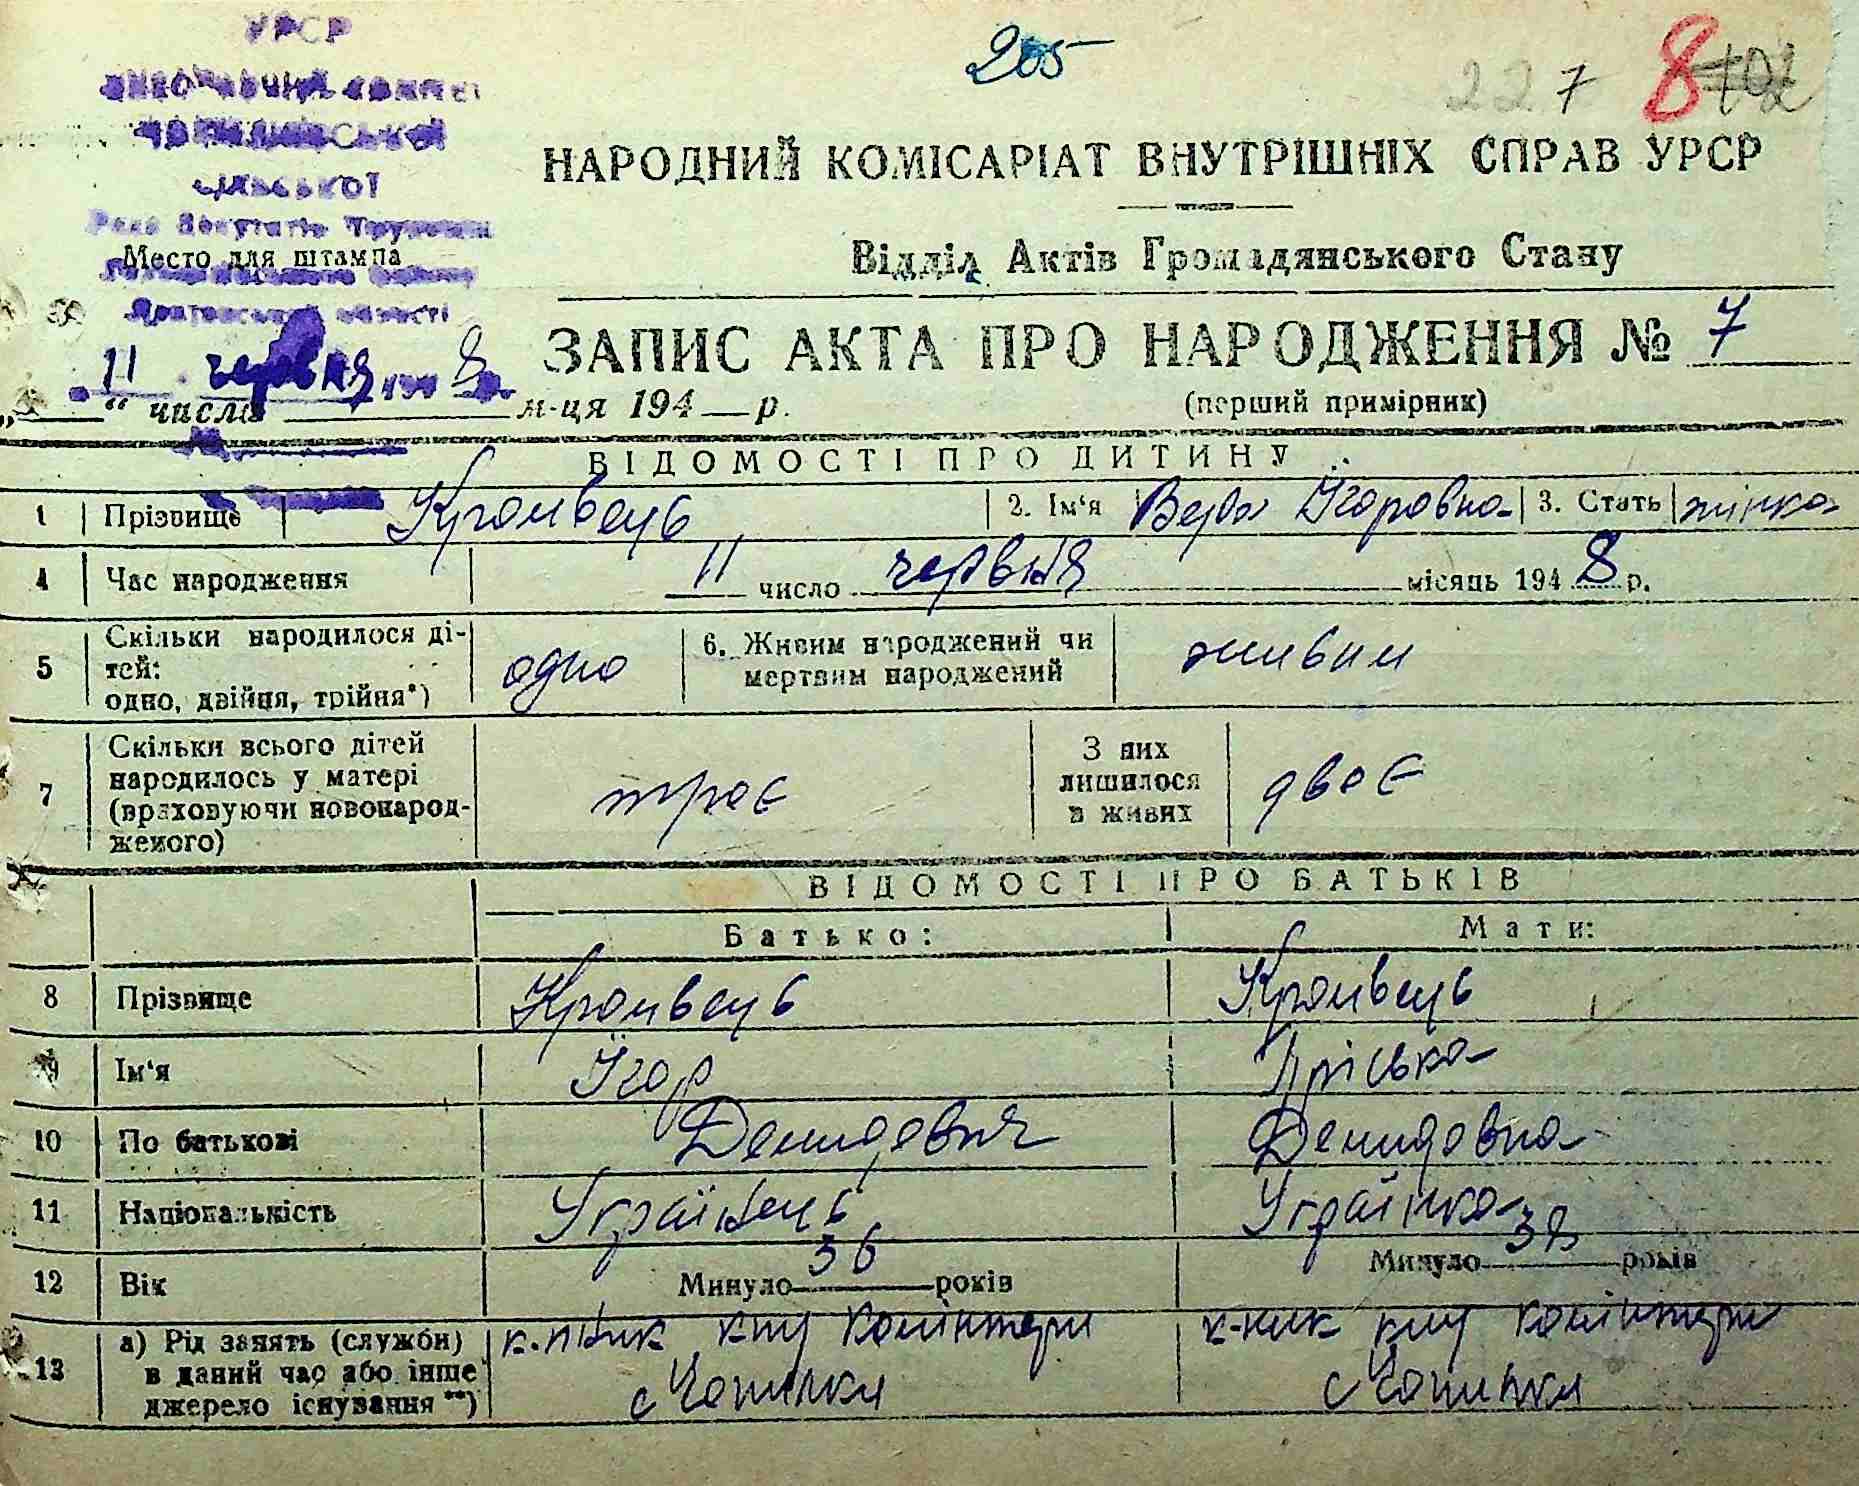 УРСР
205
227 8 102
СІЛЬСЬКОЇ
Ради Депутатів Трудящих
НАРОДНИЙ КОМІСАРІАТ ВНУТРІШНІХ СПРАВ УРСР
Место для штампа
Відділ Актів Громадянського Стану
області
ЗАПИС АКТА ПРО НАРОДЖЕННЯ № 7
11 червня 1948
„ “ числа м-ця 194 р.
(перший примірник)
ВІДОМОСТІ ПРО ДИТИНУ
1 Прізвище Кромвець 2. Ім'я Вера Ігоровна 3. Стать жінка
4 Час народження 11 число червня місяць 1948 р.
5 Скільки народилося ді-
тей:
одно, двійня, трійня*) одно
6. Живим народжений чи
мертвим народжений живим
7 Скільки всього дітей
народилось у матері
(враховуючи новонарод-
женого) троє
З них
лишилося
в живих двоє
ВІДОМОСТІ ПРО БАТЬКІВ
Батько: Мати:
8 Прізвище Кромвець Кромвець
9 Ім'я Ігор Пріська
10 По батькові Демидович Демидовна
11 Національність Українець Українка
12 Вік Минуло 36 років Минуло 38 років
13 а) Рід занять (служби)
в даний час або інше
джерело існування **)
к-ник к-пу Комінтерн к-ник к-пу Комінтерн